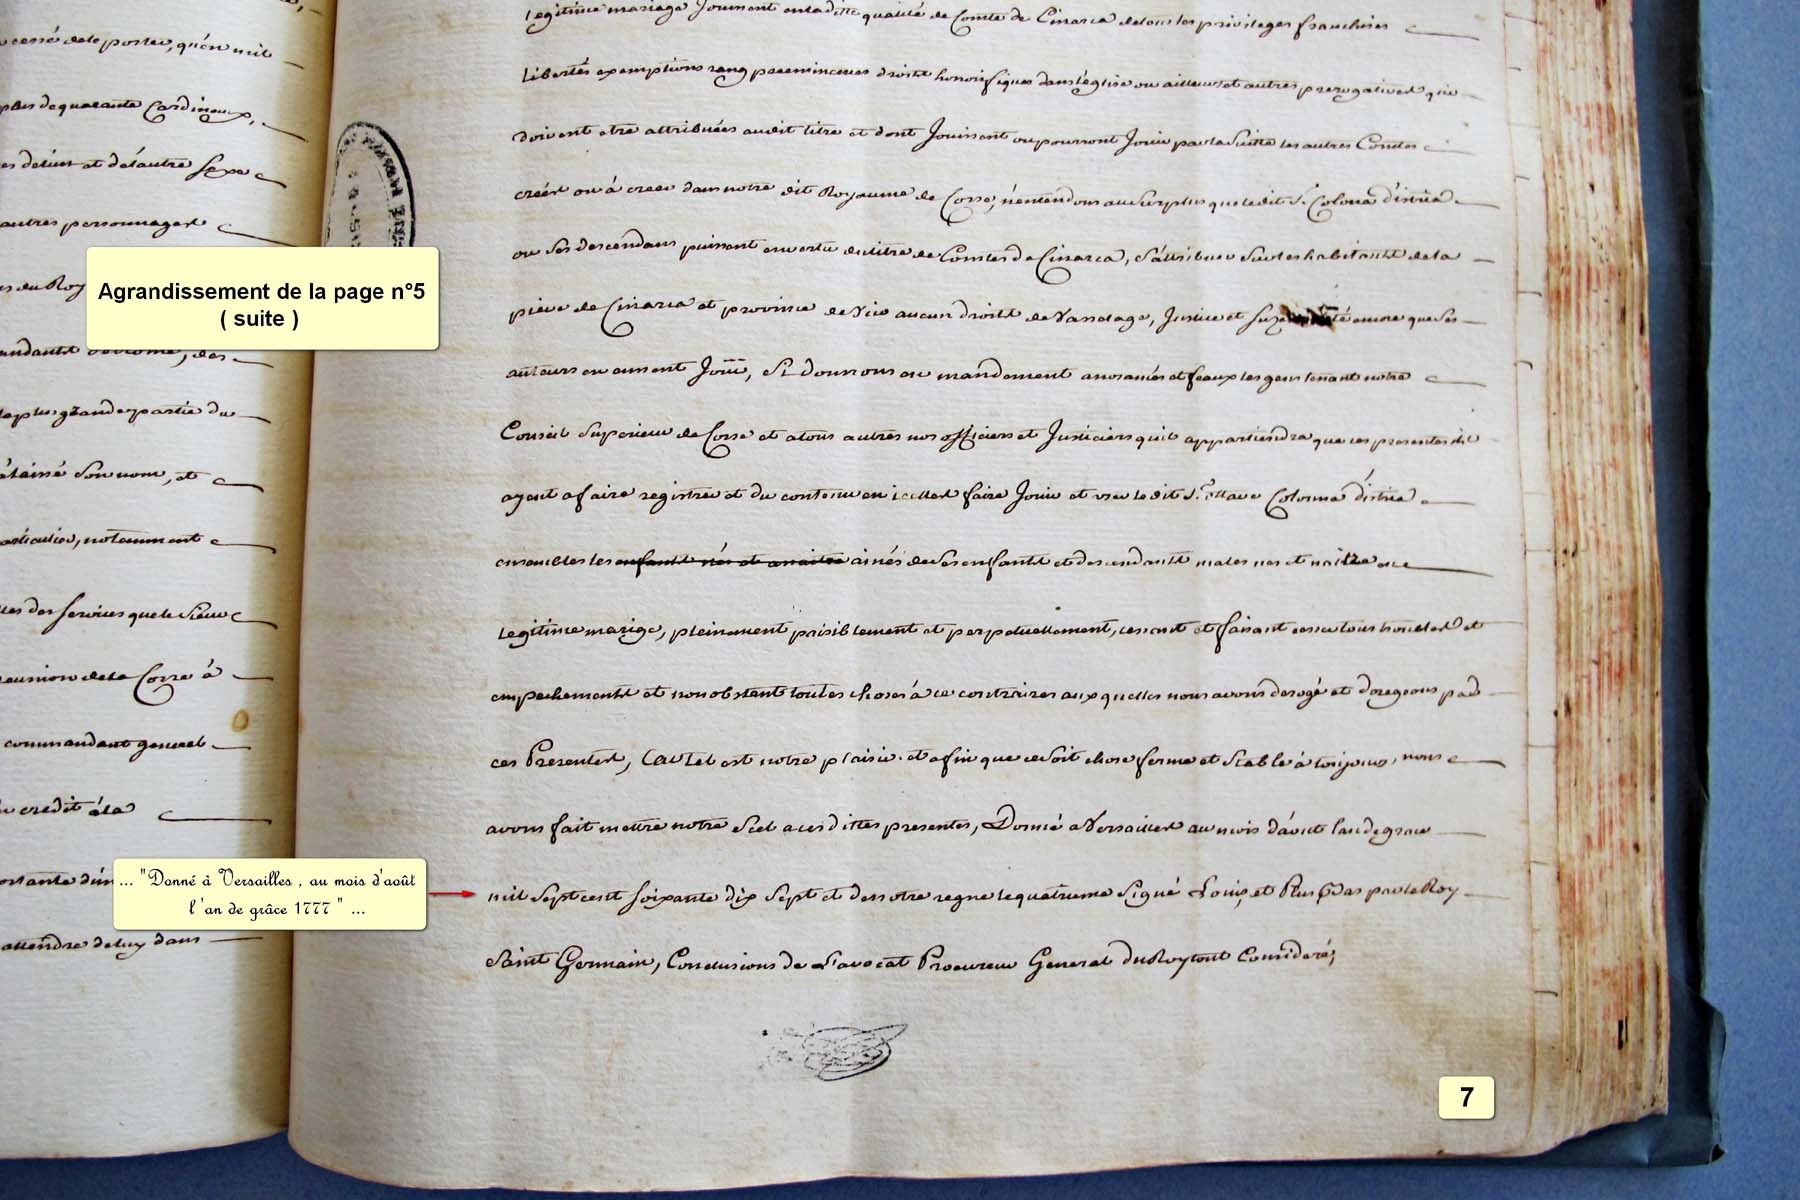 cessé de le porter, qu'en mil
plus de quarante Cardineaux,
de l'un et de l'autre Sexe
autres personnages
du Roy
de Rome, des
la plus grande partie du
laissé Son nom, et
particulier, notamment
des Services que le Sieur
reunion de la Corse à
commandant general
credit à la
attendre de luy dans
Agrandissement de la page n°5
( suite )
... "Donné à Versailles , au mois d'août
l 'an de grâce 1777 " ...
legitime mariage Jouissent en la ditte qualité de Comte de Cinarca de tous les privileges franchises
Libertés exemptions rang preeminences droits honorifiques dans l'église ou ailleurs et autres prerogatives qui
doivent etre attribuées audit titre et dont Jouissent ou pourront Jouir par la Suitte les autres Comtes
créés ou à creer dans notre dit Royaume de Corse, n'entendons au Surplus que le dit Sr. Colona d'istria
ou Ses descendans puissent en vertu du titre de Comtes de Cinarca, S'attribuer Sur les habitants de la
pieve de Cinarca et province de Vico aucun droits de Vasselage, Justice et encore que Ses
auteurs en eussent Joui, Si donnons en mandement a nos amés et feaux les gens tenant notre
Conseil Superieur de Corse et a tous autres nos officiers et Justiciers qu'il appartiendra que ces presentes ils
ayent a faire registrer et du contenu en icelles faire Jouir et user le dit Sr. Ottavio Colonna d'istria
ensembles les enfants nés et a naitre ainés de Ses enfants et descendants males nes et naitre en
legitime mariage, pleinement paisiblement et perpetuellement, cessant et faisant cesser tous troubles et
empechements et nonobstant toutes choses à ce contraires aux quelles nous avons derogé et derogeons par
ces Presentes, Car tel est notre plaisir et afin que ce Soit chose ferme et Stable à toujours, nous
avons fait mettre notre Scel a ces dittes presentes, Donné a Versailles au mois d'août l'an de grace
mil Sept cent Soixante dix Sept et de notre regne le quatrieme Signé Louis, et Plus Bas par le Roy
Saint Germain, Conclusions de L'avocat Procureur General du Roy tout Consideré,
7